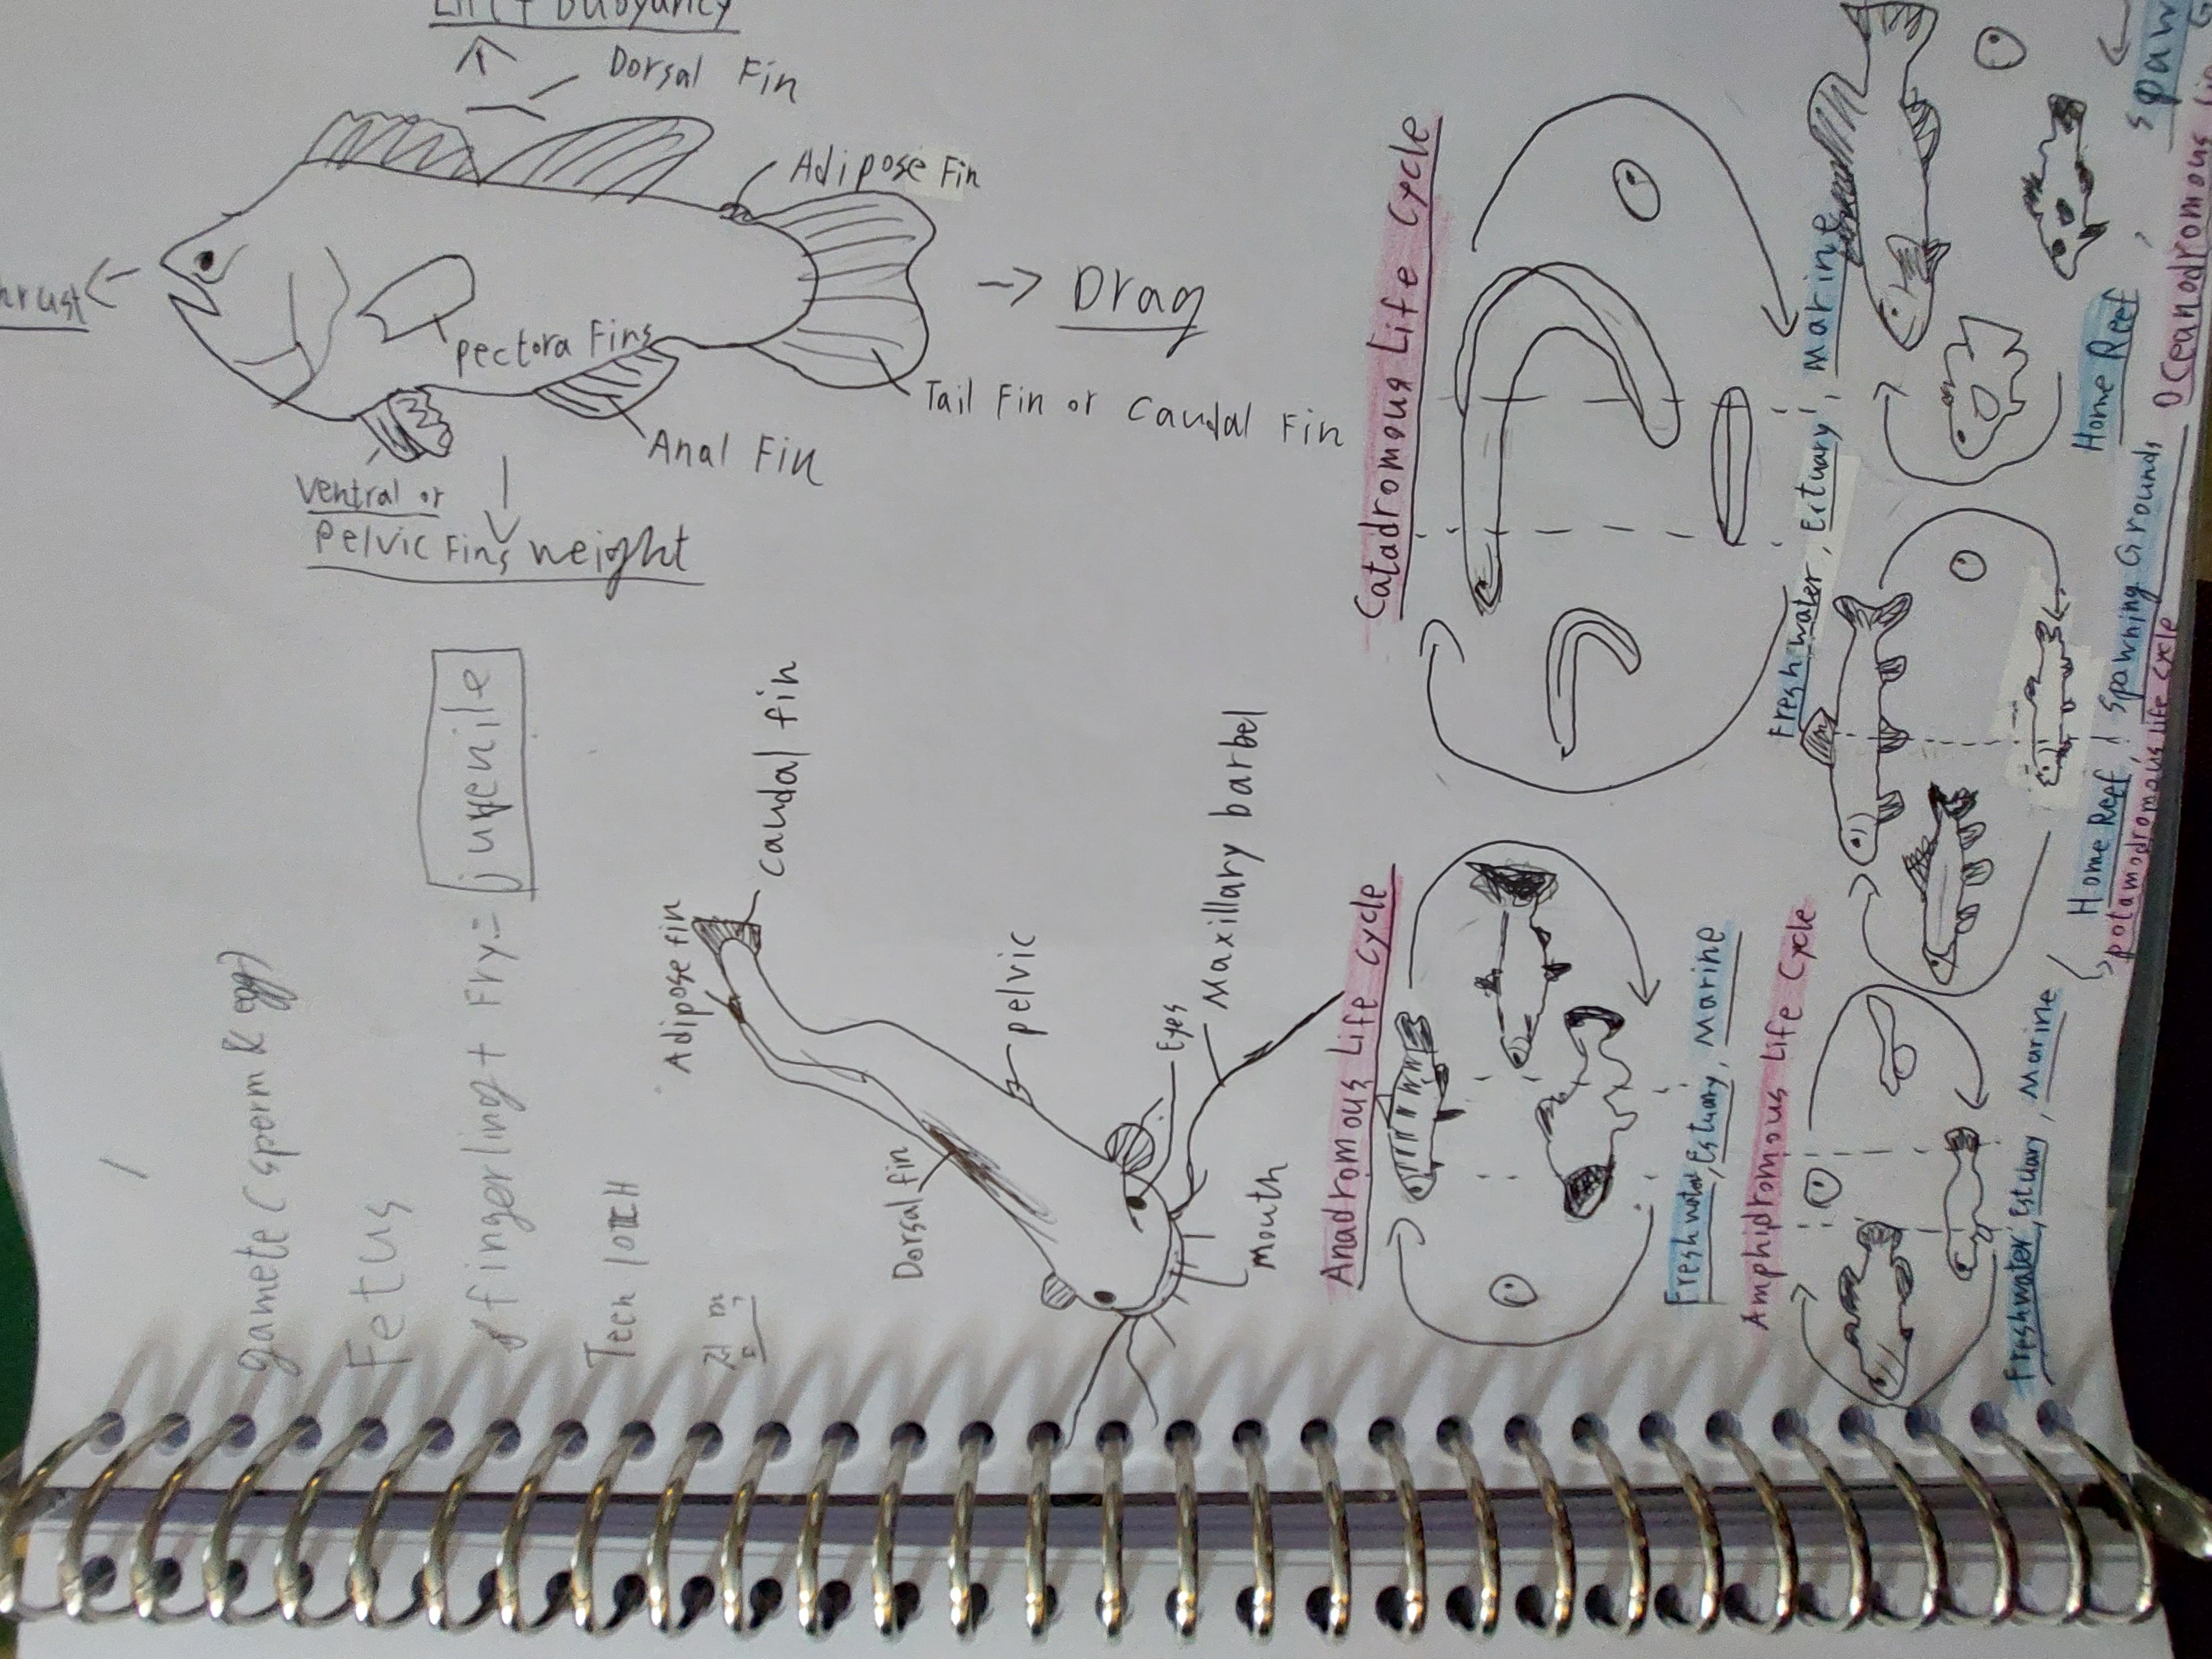 Lift + Buoyancy
Dorsal Fin
Adipose Fin
Drag
pectora Fins
Tail Fin or Caudal Fin
Anal Fin
Ventral or
Pelvic Fins
weight
gamete (sperm & egg)
Fetus
fingerling + Fry =
juvenile
Adipose fin
caudal fin
pelvic
Dorsal fin
Eyes
Maxillary barbel
Mouth
Catadromous Life Cycle
Freshwater, Eituary, Marine
Anadromous Life Cycle
Freshwater, Estuary, Marine
Amphidromous Life Cycle
Freshwater, Estuary, Marine
Home Reef, Spawning Grounds
potamodromous life cycle
Home Reef
Oceanodromous